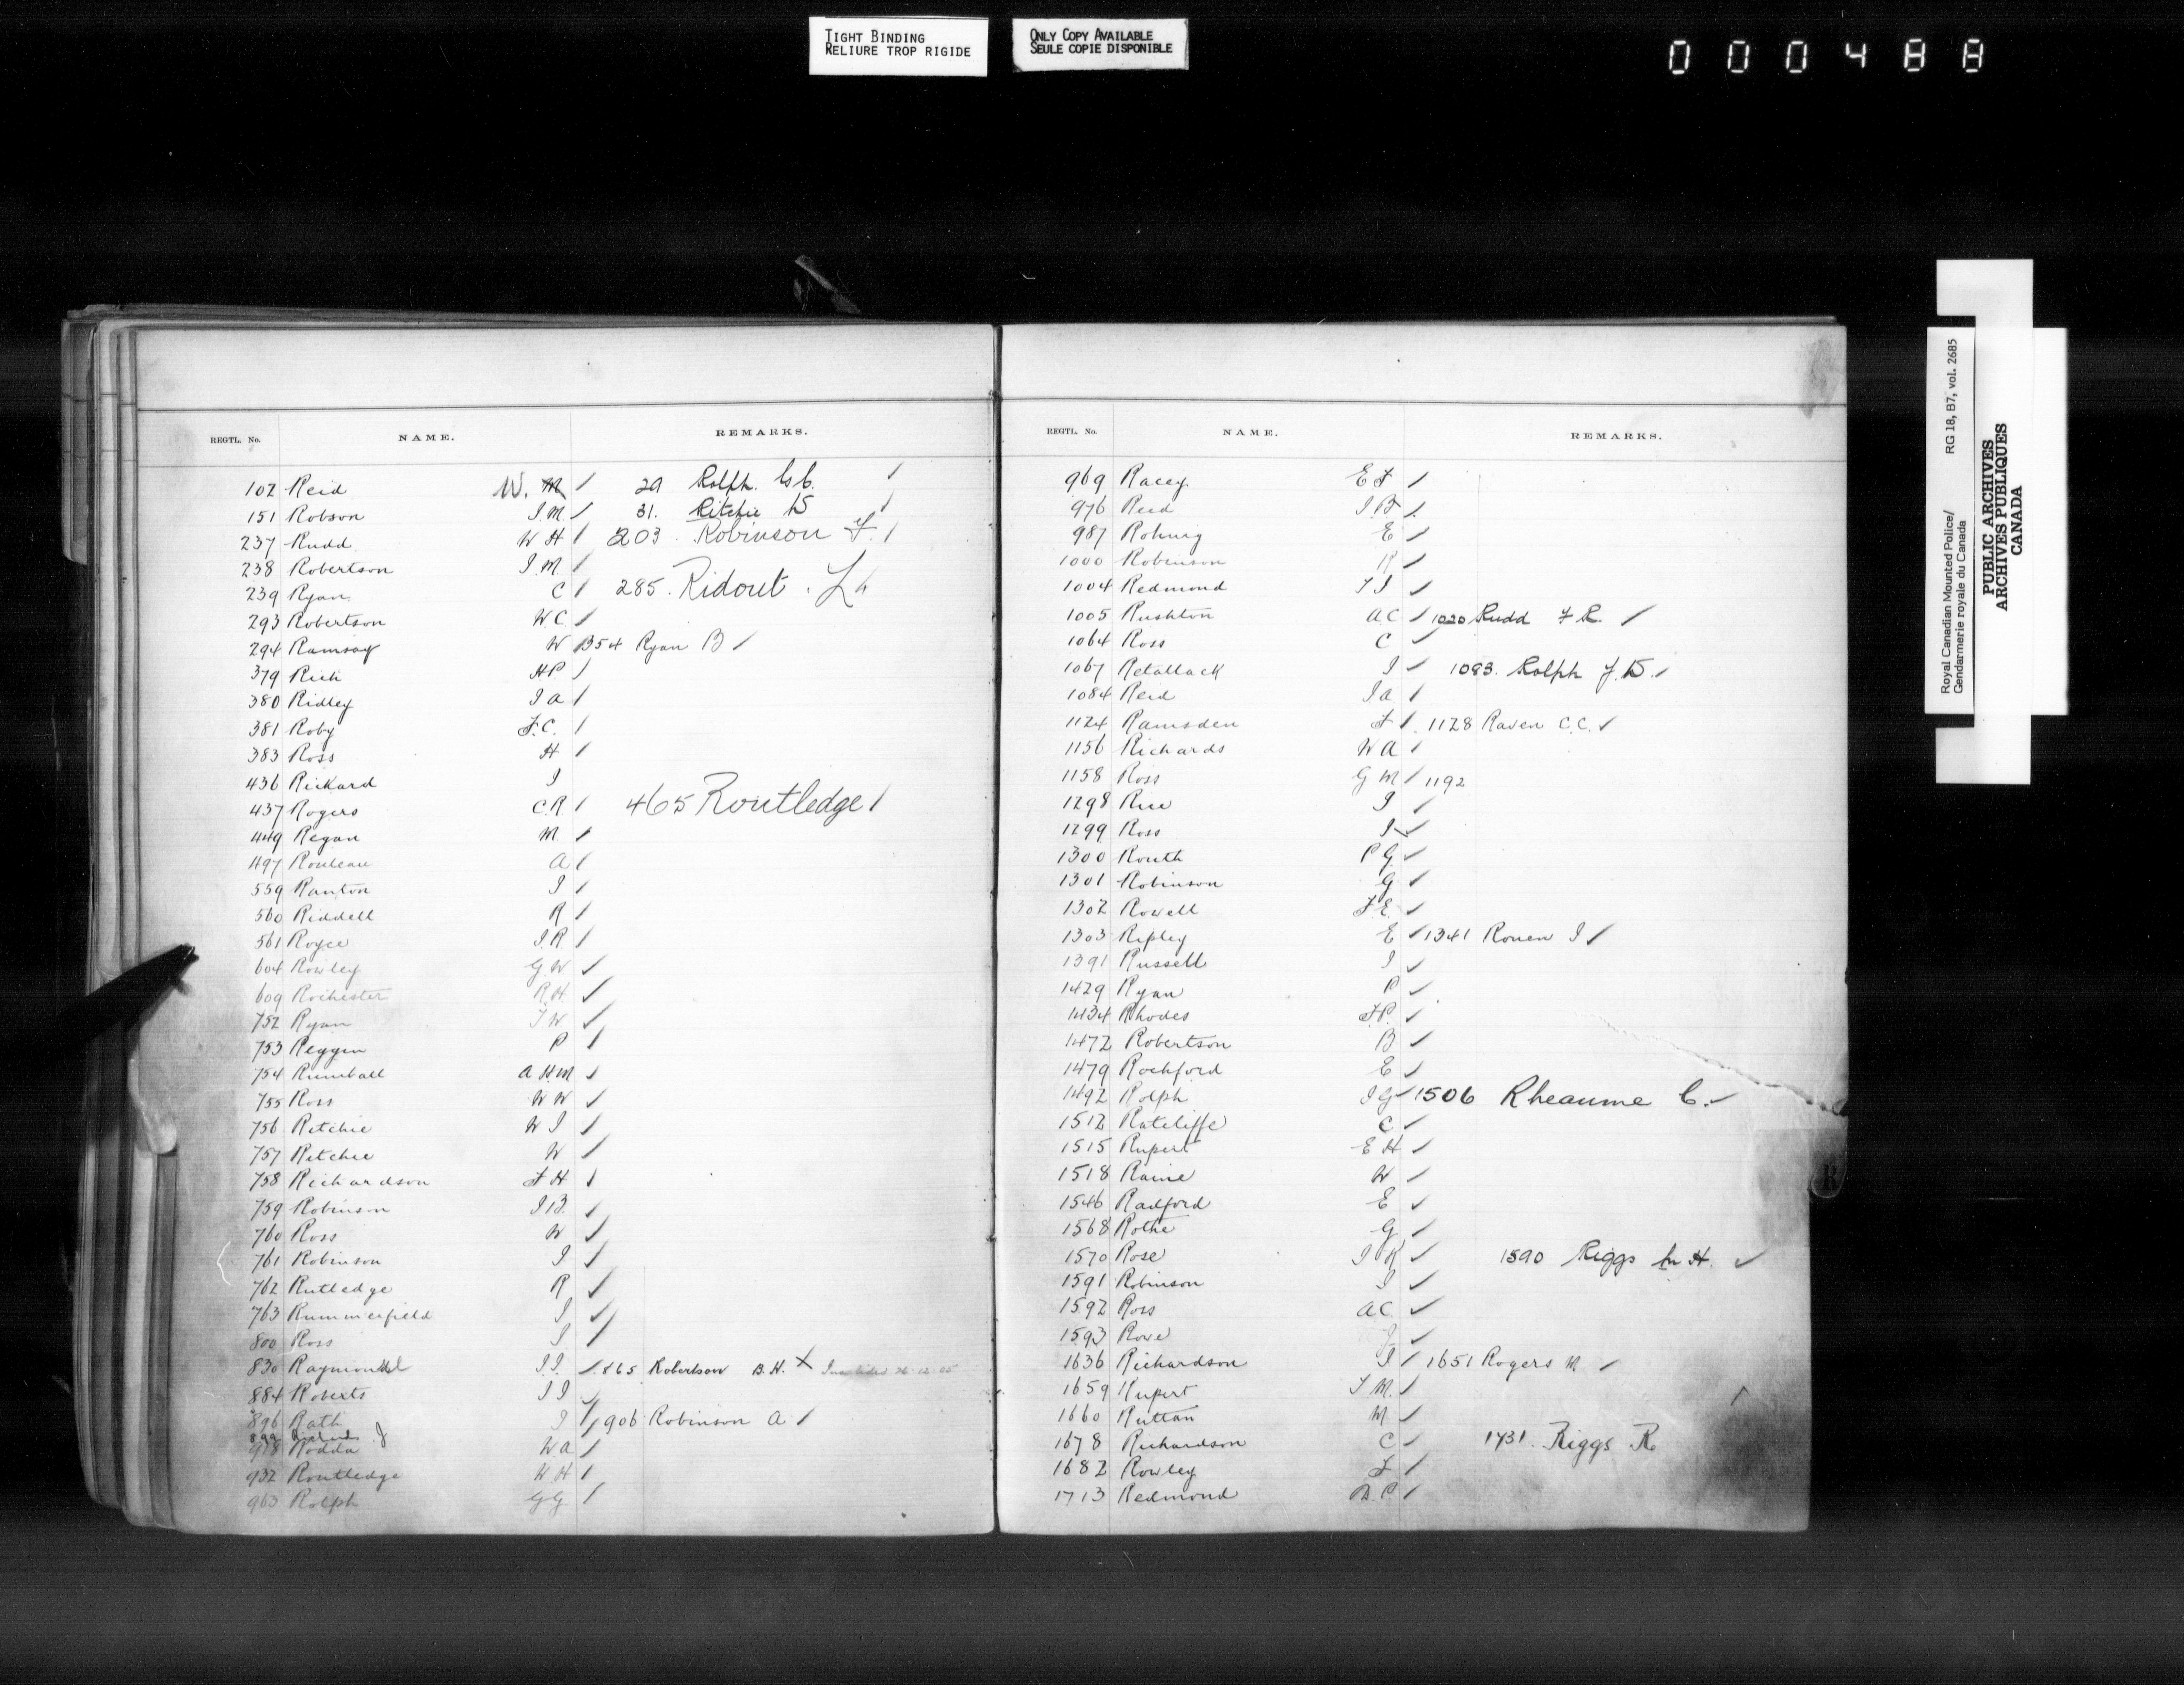 TIGHT BINDING
RELIURE TROP RIGIDE
ONLY COPY AVAILABLE
SEULE COPIE DISPONIBLE
000488
REGTL. No. NAME. REMARKS.
102 Reid W. M 29 Rolph
151 Robson J.M. 31. Ritchie
237 Rudd W H 203. Robinson F.
238 Robertson J.M.
239 Ryan C 285. Ridout. L
293 Robertson W C
294 Ramsay W 354 Ryan B
379 Rich H P
380 Ridley J a
381 Roby F. C.
383 Ross H
436 Rickard J
437 Rogers C. R. 465 Routledge
449 Regan M
497 Rouleau A
559 Ranton J
560 Riddell R
561 Royce J. R.
604 Rowley G. W
609 Rochester R. H.
752 Ryan T W
753 Reggin P
754 Rumball A H M
755 Ross W W
756 Ritchie W J
757 Ritchie W
758 Richardson F H
759 Robinson J B.
760 Ross W
761 Robinson J
762 Rutledge R
763 Rummerfield J
800 Ross J
830 Raymond J. J. 865 Robertson B. H. X 26.12.05
884 Roberts J J
896 Rath J 906 Robinson A
899 J
918 Rodda W a
932 Routledge W H
963 Rolph G G
REGTL. No. NAME. REMARKS.
969 Racey E F
976 Reed J. B
987 Rohnig E
1000 Robinson R
1004 Redmond T J
1005 Rushton A C 1020 Rudd F R.
1064 Ross C
1067 Retallack J 1093. Rolph J. B.
1084 Reid J a
1124 Ramsden F 1128 Raven C. C.
1156 Richards W A
1158 Ross G M 1192
1298 Rice J
1299 Ross J
1300 Routh P G
1301 Robinson G
1302 Rowell F. E.
1303 Ripley E 1341 Rouen J
1391 Russell J
1429 Ryan P
1434 Rhodes F P.
1472 Robertson B
1479 Rochford E
1492 Rolph J G 1506 Rheaume C.
1512 Ratcliffe C
1515 Rupert E H
1518 Raine W
1546 Radford E
1568 Rothe G
1570 Rose J R 1590 Riggs H.
1591 Robinson J
1592 Ross A C.
1593 Rowe J
1636 Richardson J 1651 Rogers M
1659 Rupert T M.
1660 Ruttan M
1678 Richardson C 1731. Riggs R
1682 Rowley F
1713 Redmond D. P
R
Royal Canadian Mounted Police/ RG 18, B7, vol. 2685
Gendarmerie royale du Canada
PUBLIC ARCHIVES
ARCHIVES PUBLIQUES
CANADA